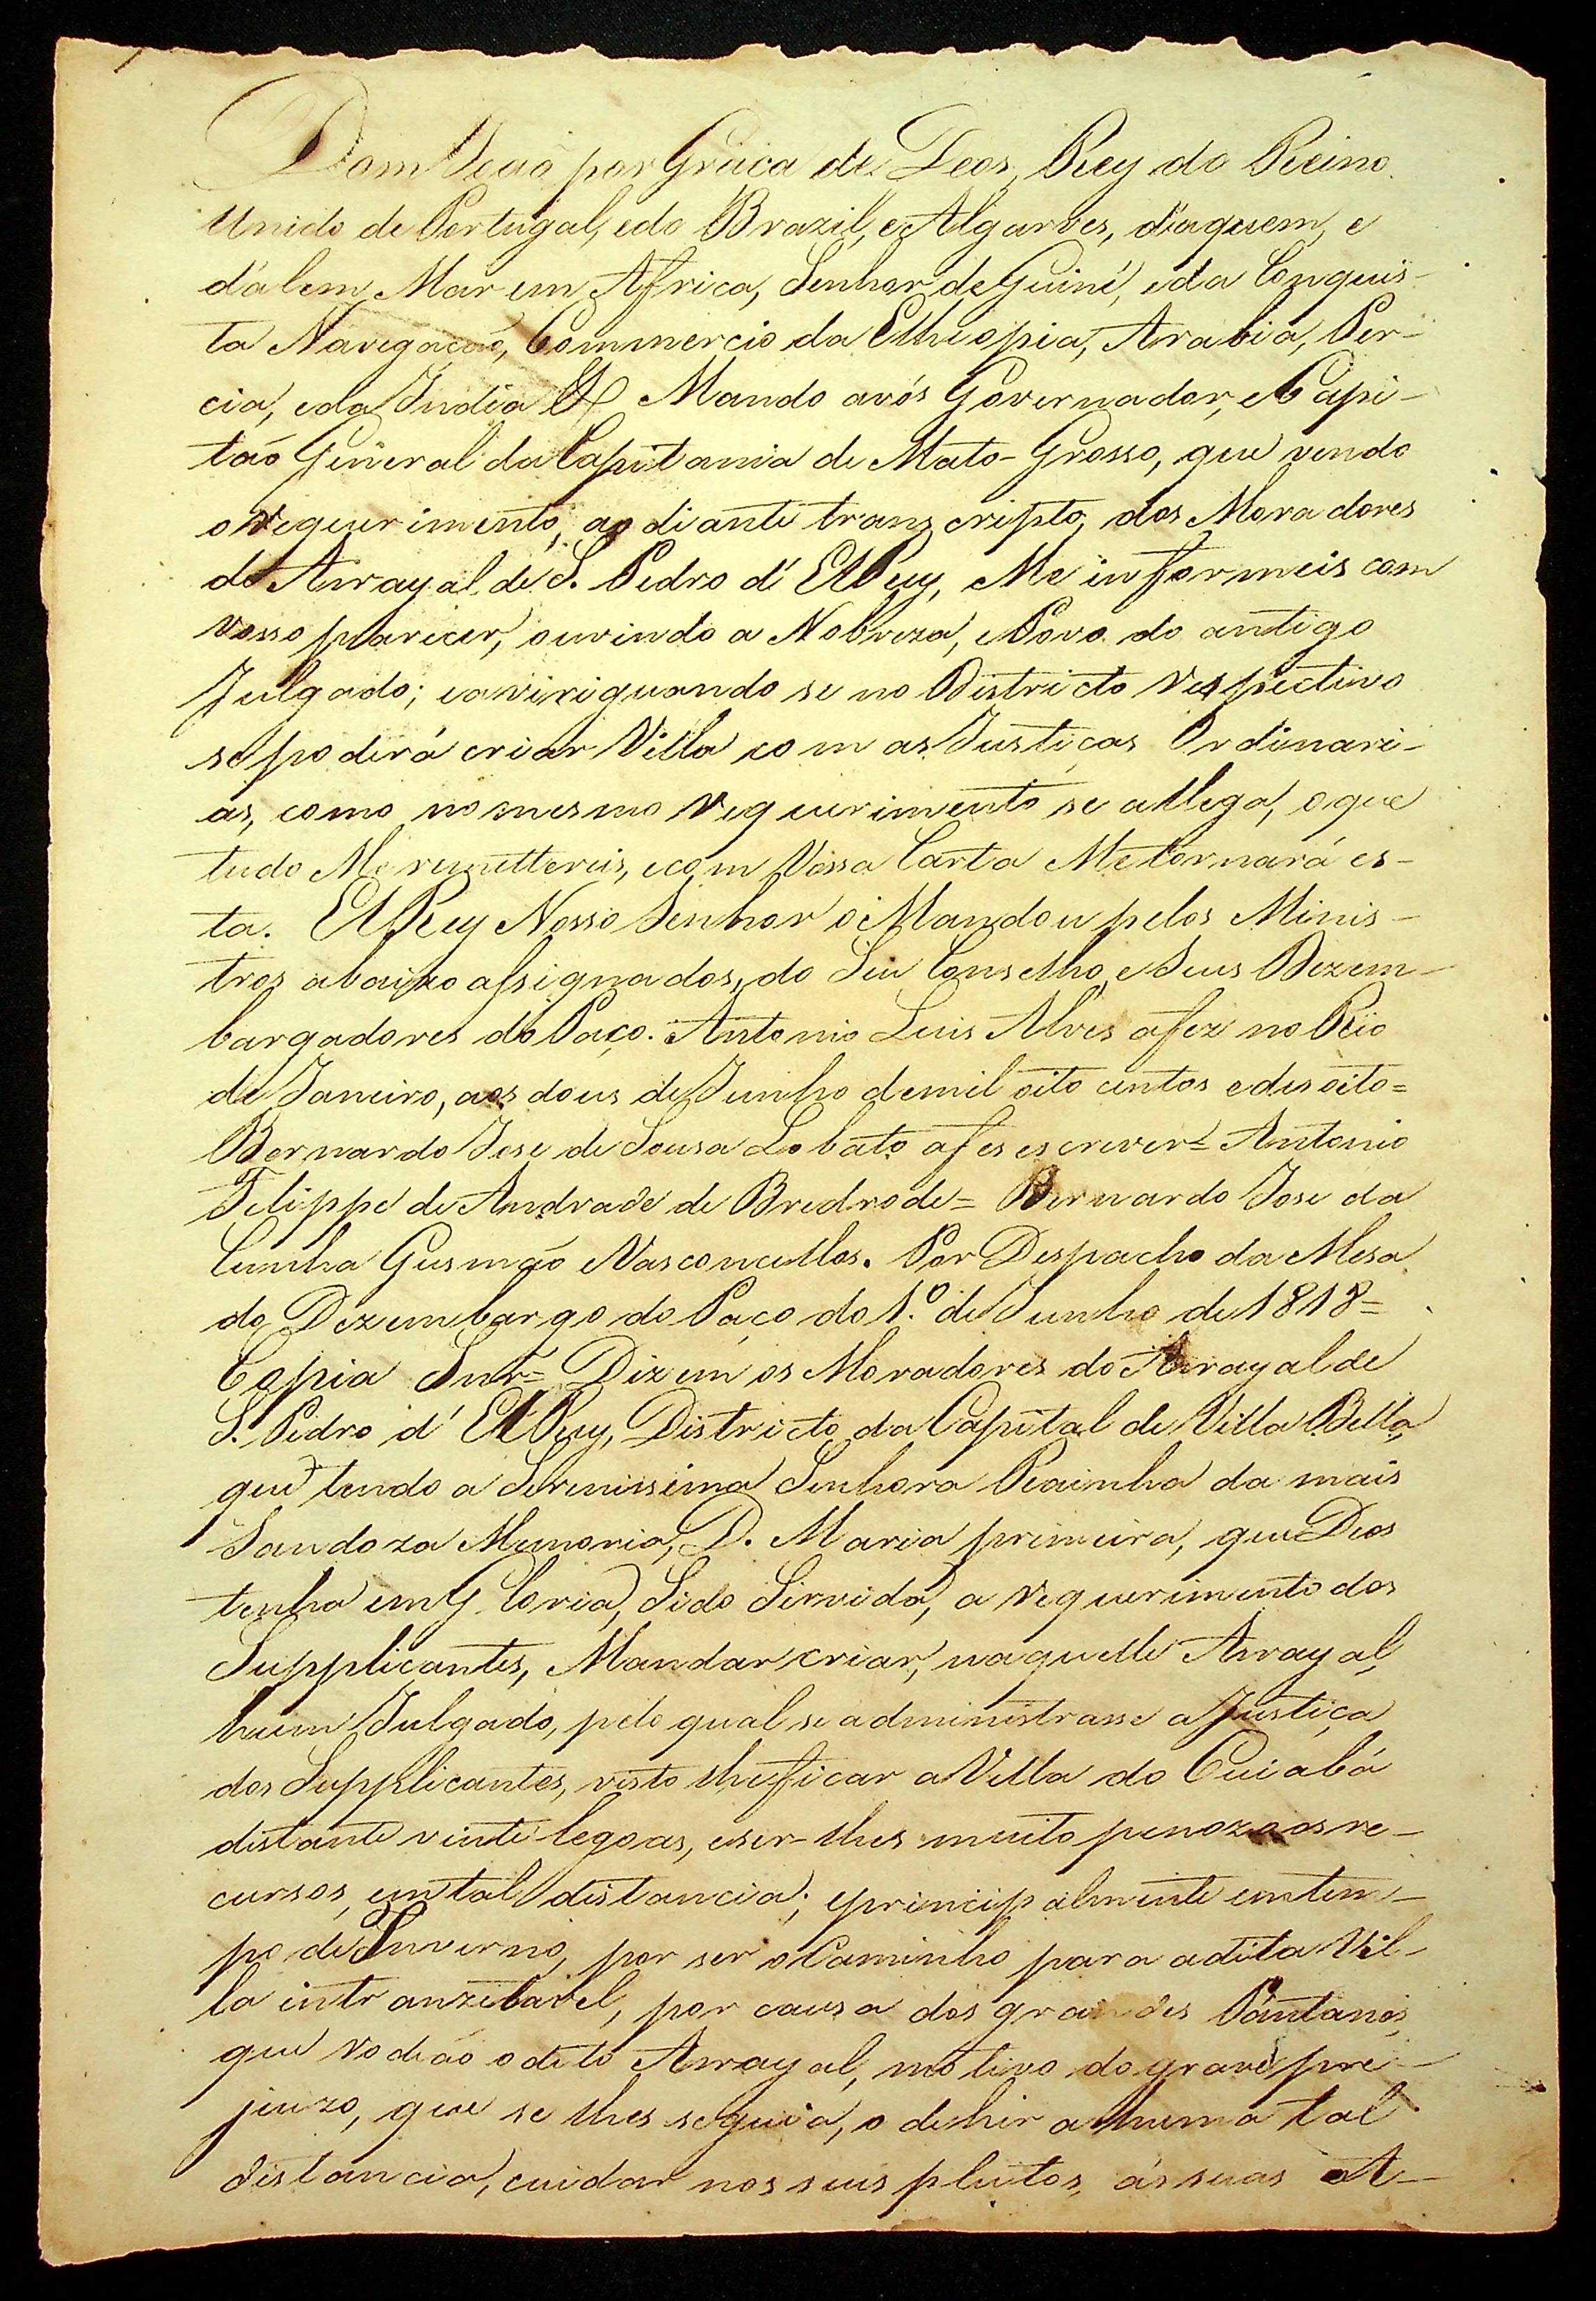 Dom Joaõ por Graça de Deos, Rey do Reino
Unido de Portugal, e do Brazil, e Algarves, d'aquem, e
d'alem, Mar em Africa, Senhor de Guiné, e da Conquis-
ta Navegação, Commercio da Ethiopia, Arabia, Per-
cia, e da India &. Mando avós Governador, e Capi-
taõ General da Capitania de Mato-Grosso, que vendo
o requerimento, ao diante transcripto, dos Moradores
do Arrayal de S. Pedro d'ElRey, Me informeis com
vosso parecer, ouvindo a Nobreza, e Povo do antigo
Julgado; e aviriguando se no Districto respectivo
se poderá criar Villa com as Justiças Ordinari-
as, como no mesmo requerimento se allega, o que
tudo Me remettereis, e com Vossa Carta Me tornará es-
ta. ElRey Nosso Senhor o Mandou pelos Minis-
tros abaixo assignados, do Seu Conselho, e Seus Dezem-
bargadores do Paço. Antonio Luis Alves a fez no Rio
de Janeiro, aos dous de Junho de mil oito centos e desoito=
Bernardo Jose de Sousa Lobato a fes escrever= Antonio
Felippe de Andrade de Bredrode= Bernardo Jose da
Cunha Gusmaõ Vasconcellos. Por Despacho da Mesa
do Dezembargo do Paço do 1.º de Junho de 1818=
Copia Snr= Dizem os Moradores do Arrayal de
S. Pedro d'ElRey, Districto da Capital de Villa Bella,
que tendo a Serenissima Senhora Rainha da mais
Saudoza Memoria, D. Maria primeira, que Deos
tenha em Gloria, Sido Servida, a requerimento dos
Supplicantes, Mandar criar, naquelle Arrayal,
hum Julgado, pelo qual se administrasse a Justiça
dos Supplicantes, visto lhe ficar a Villa do Cuiabá
distante vinte legoas, e ser-lhes muito penozo os re-
cursos, em tal distancia; e principalmente em tem-
po de Inverno, por ser o Caminho para a dita Vil-
la intranzitavel, por causa dos grandes Pântanos,
que rodeão o dito Arrayal, motivo do grave pre-
juizo, que se lhes seguia, o de hir a huma tal
distancia, cuidar nos seus pleitos, ás suas A-